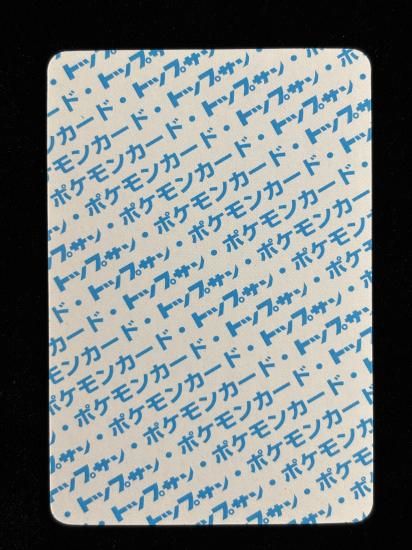 トップサン・
カード・トップサン・
ポケモンカード・トップサン・
・ポケモンカード・トップサン
サン・ポケモンカード・トップサン
トップサン・ポケモンカード・
・トップサン・ポケモンカード
カード・トップサン・ポケモンカ
ンカード・トップサン・ポケモン
モンカード・トップサン・ポケ
ポケモンカード・トップサン・
・ポケモンカード・トップサン
サン・ポケモンカード・
トップサン・ポケモンカード
トップサン・ポケモン
トップサン・ポケ
トップサン